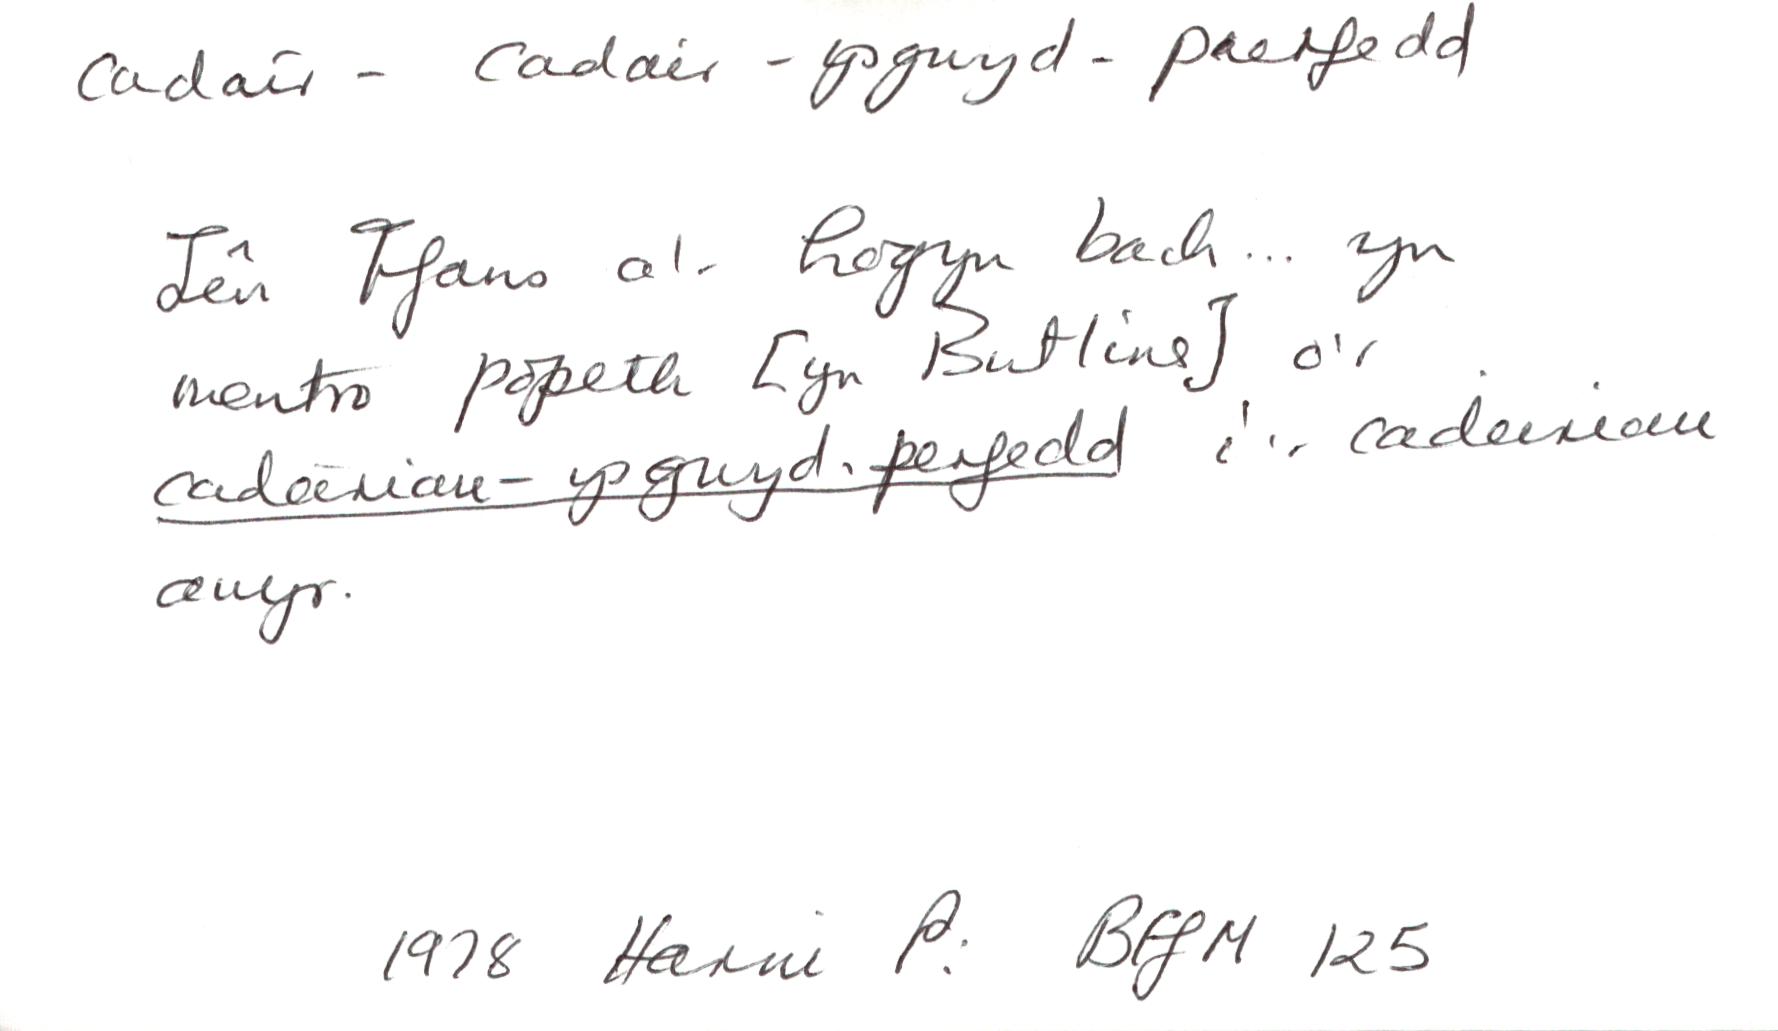 cadair - cadair - ysgwyd - perfedd
Iên Ifans a'r hogyn bach ... yn
mentro pópeth [yn Butlins] o'r
cadeiriau - ysgwyd - perfedd i'r cadeiriau
awyr.
1978 Harri P. BffM 125